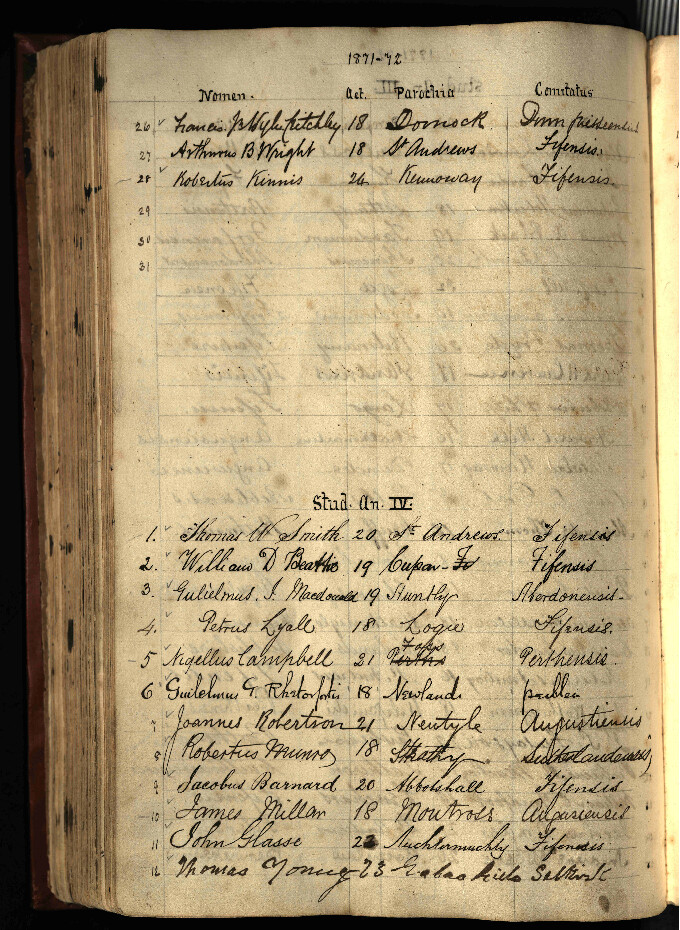 1871-72
Nomen. Aet. Parochia Comitatus
26 Francis B Wyle 18 Dornock
27 Arthurus B Wright 18 St Andrews Fifensis.
28 Robertus Kinnis 24 Kennoway Fifensis.
29
30
31
Stud. An. IV.
1. Thomas W Smith 20 St Andrews. Fifensis
2. William D Beattie 19 Cupar-Fife Fifensis
3. Gulielmus. J. Macdonald 19 Huntly Aberdonensis-
4. Petrus Lyall 18 Logie Fifensis.
5 Nigellus Campbell 21 Perthensis.
6 Guilelmus G. 18 Newlands
7 Joannes Robertson 21 Newtyle
8 Robertus Munro 18 Strathy
9 Jacobus Barnard 20 Abbotshall Fifensis
10 James Millar 18 Montrose
11 John Glasse Auchtermuchty Fifensis
12 Thomas Young 23 Galashiels Selkirk